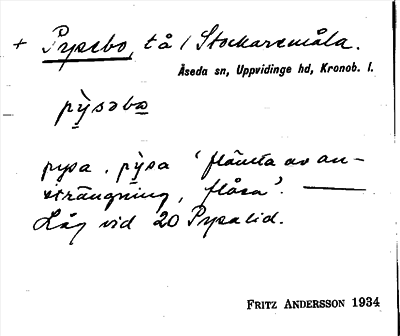 + Pysebo, tå / Stockaremåla.
Åseda sn, Uppvidinge hd, Kronob. l.
pỳsəbω
pysa, pỳsa ‘flämta av an-
strängning, flåsa’. ——
Låg vid 20 Pysalid.
FRITZ ANDERSSON 1934